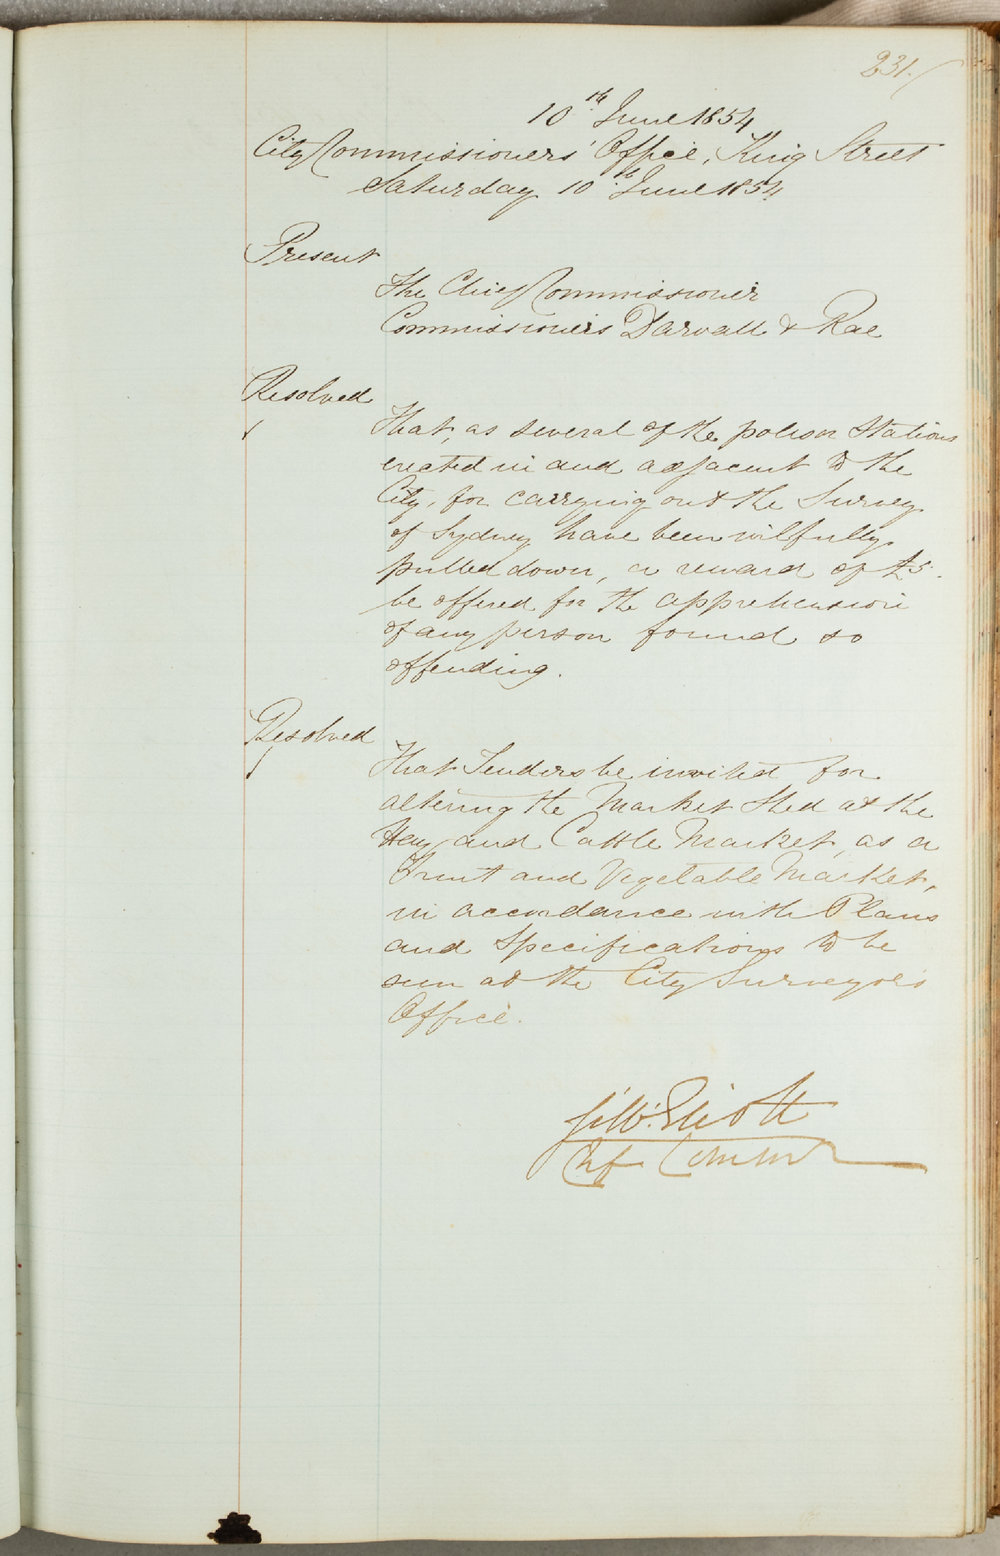 231.
10th June 1854
City Commissioners' Office, King Street
Saturday 10th June 1854
Present
The Chief Commissioner
Commissioners Darvall & Rae
Resolved
That, as several of the Stations
erected in and adjacent to the
City, for carrying out the Survey
of Sydney have been wilfully
pulled down, a reward of £5.
be offered for the apprehension
of any person found so
offending.
Resolved
That Tenders be invited for
altering the Market Shed at the
Hay and Cattle Market, as a
Fruit and Vegetable Market,
in accordance with Plans
and Specifications to be
seen at the City Surveyors
Office.
Elliott
Chf Commr